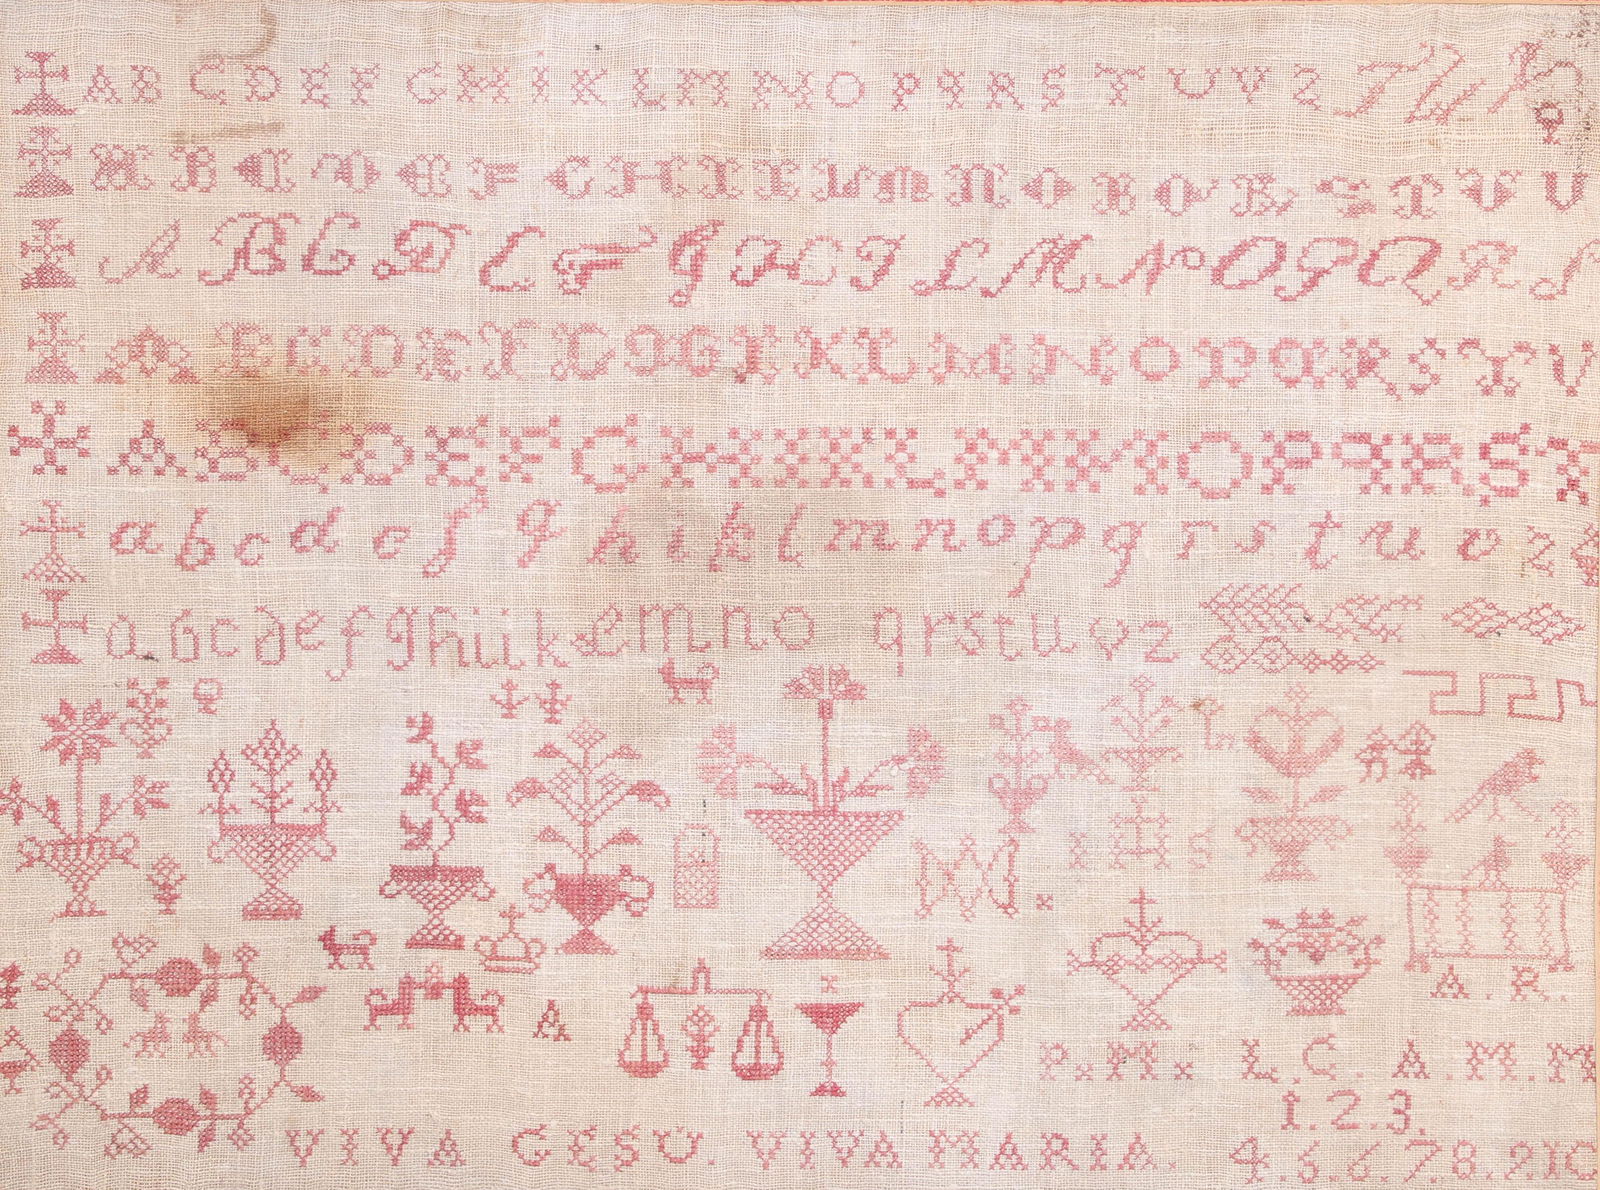 A B C D E F G H I K L M N O P Q R S T U V Z T U
A B C D E F G H I L M N O P Q R S T V U
A B C D E F G H I L M N O P Q R S
A B C D E F G I K L M N O P Q R S T V
A B C D E F G H I K L M N O P Q R S T
a b c d e f g h i k l m n o p q r s t u v z
a b c d e f g h i i k l m n o q r s t u v z
I H S
M
A. R.
A
P. M. L. C. A. M. M
1. 2. 3.
VIVA GESU. VIVA MARIA. 4. 5. 6. 7. 8. 9 1 0